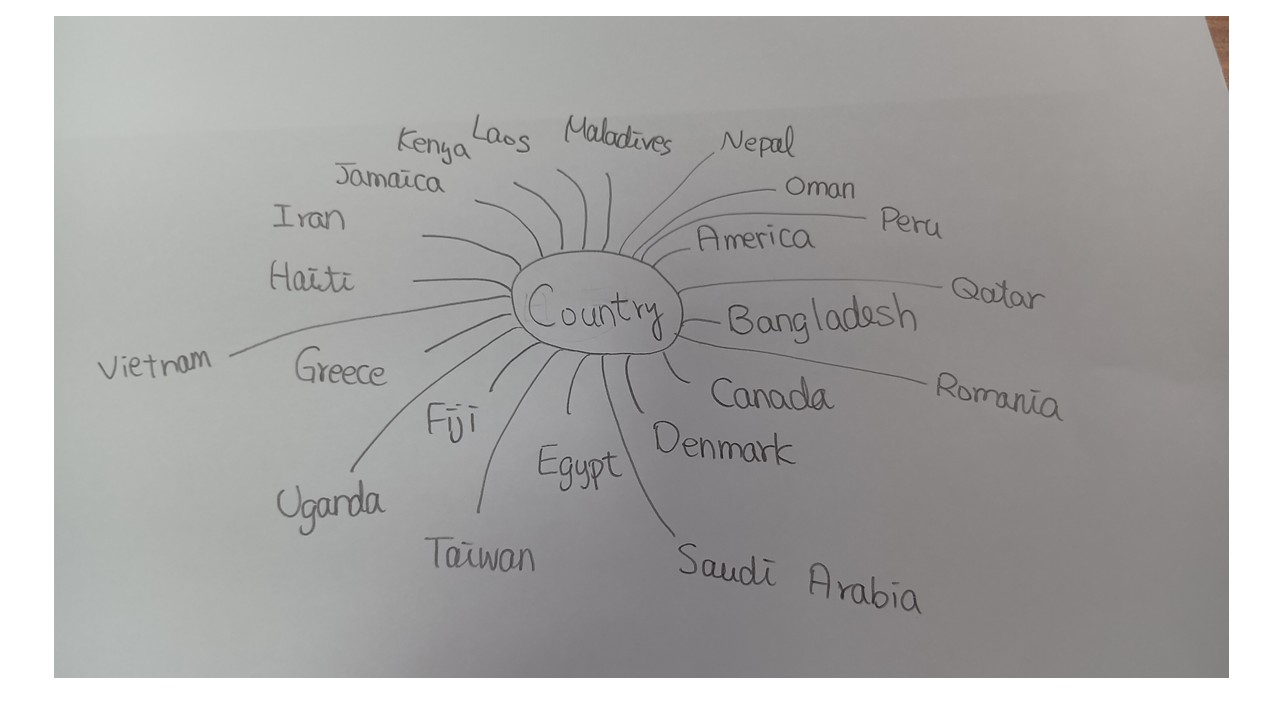 Country
America
Bangladesh
Canada
Denmark
Egypt
Fiji
Greece
Haiti
Iran
Jamaica
Kenya
Laos
Maladives
Nepal
Oman
Peru
Qatar
Romania
Saudi Arabia
Taiwan
Uganda
Vietnam